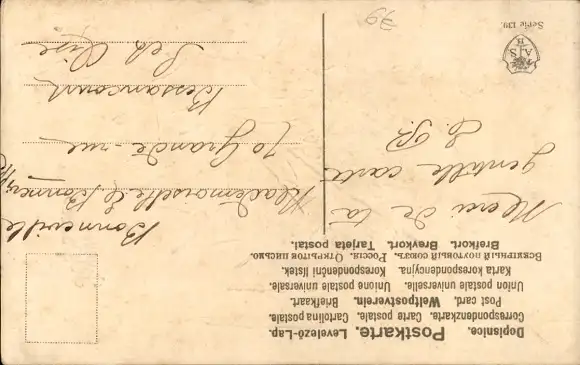 Dopisnice. Postkarte. Levelező-Lap.
Correspondenzkarte. Carte postale. Cartolina postale.
Post card. Weltpostverein. Briefkaart.
Union postale universelle. Unione postale universale
Karta korespondencyjna. Korespondenční lístek.
Всемірный почтовый союзъ. Россія. Открытое письмо.
Brefkort. Brevkort. Tarjeta postal.
Merci de ta
gentille carte
Bonneville
Mademoiselle
70 Grande-rue
Bessancourt
S et Oise
Serie 139.
A S
B
39